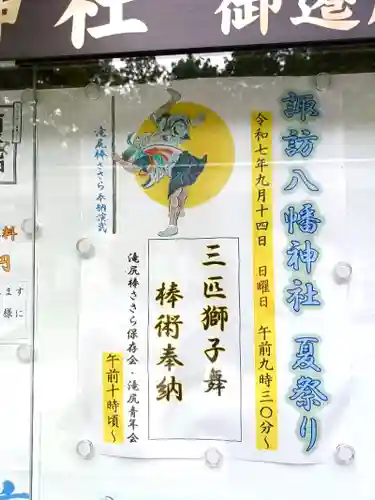 神社 御遷
諏訪八幡神社 夏祭り
令和七年九月十四日 日曜日 午前九時三〇分~
三匹獅子舞
棒術奉納
滝尻棒ささら奉納演武
滝尻棒ささら保存会・滝尻青年会
午前十時頃~
料
円
ます
様に